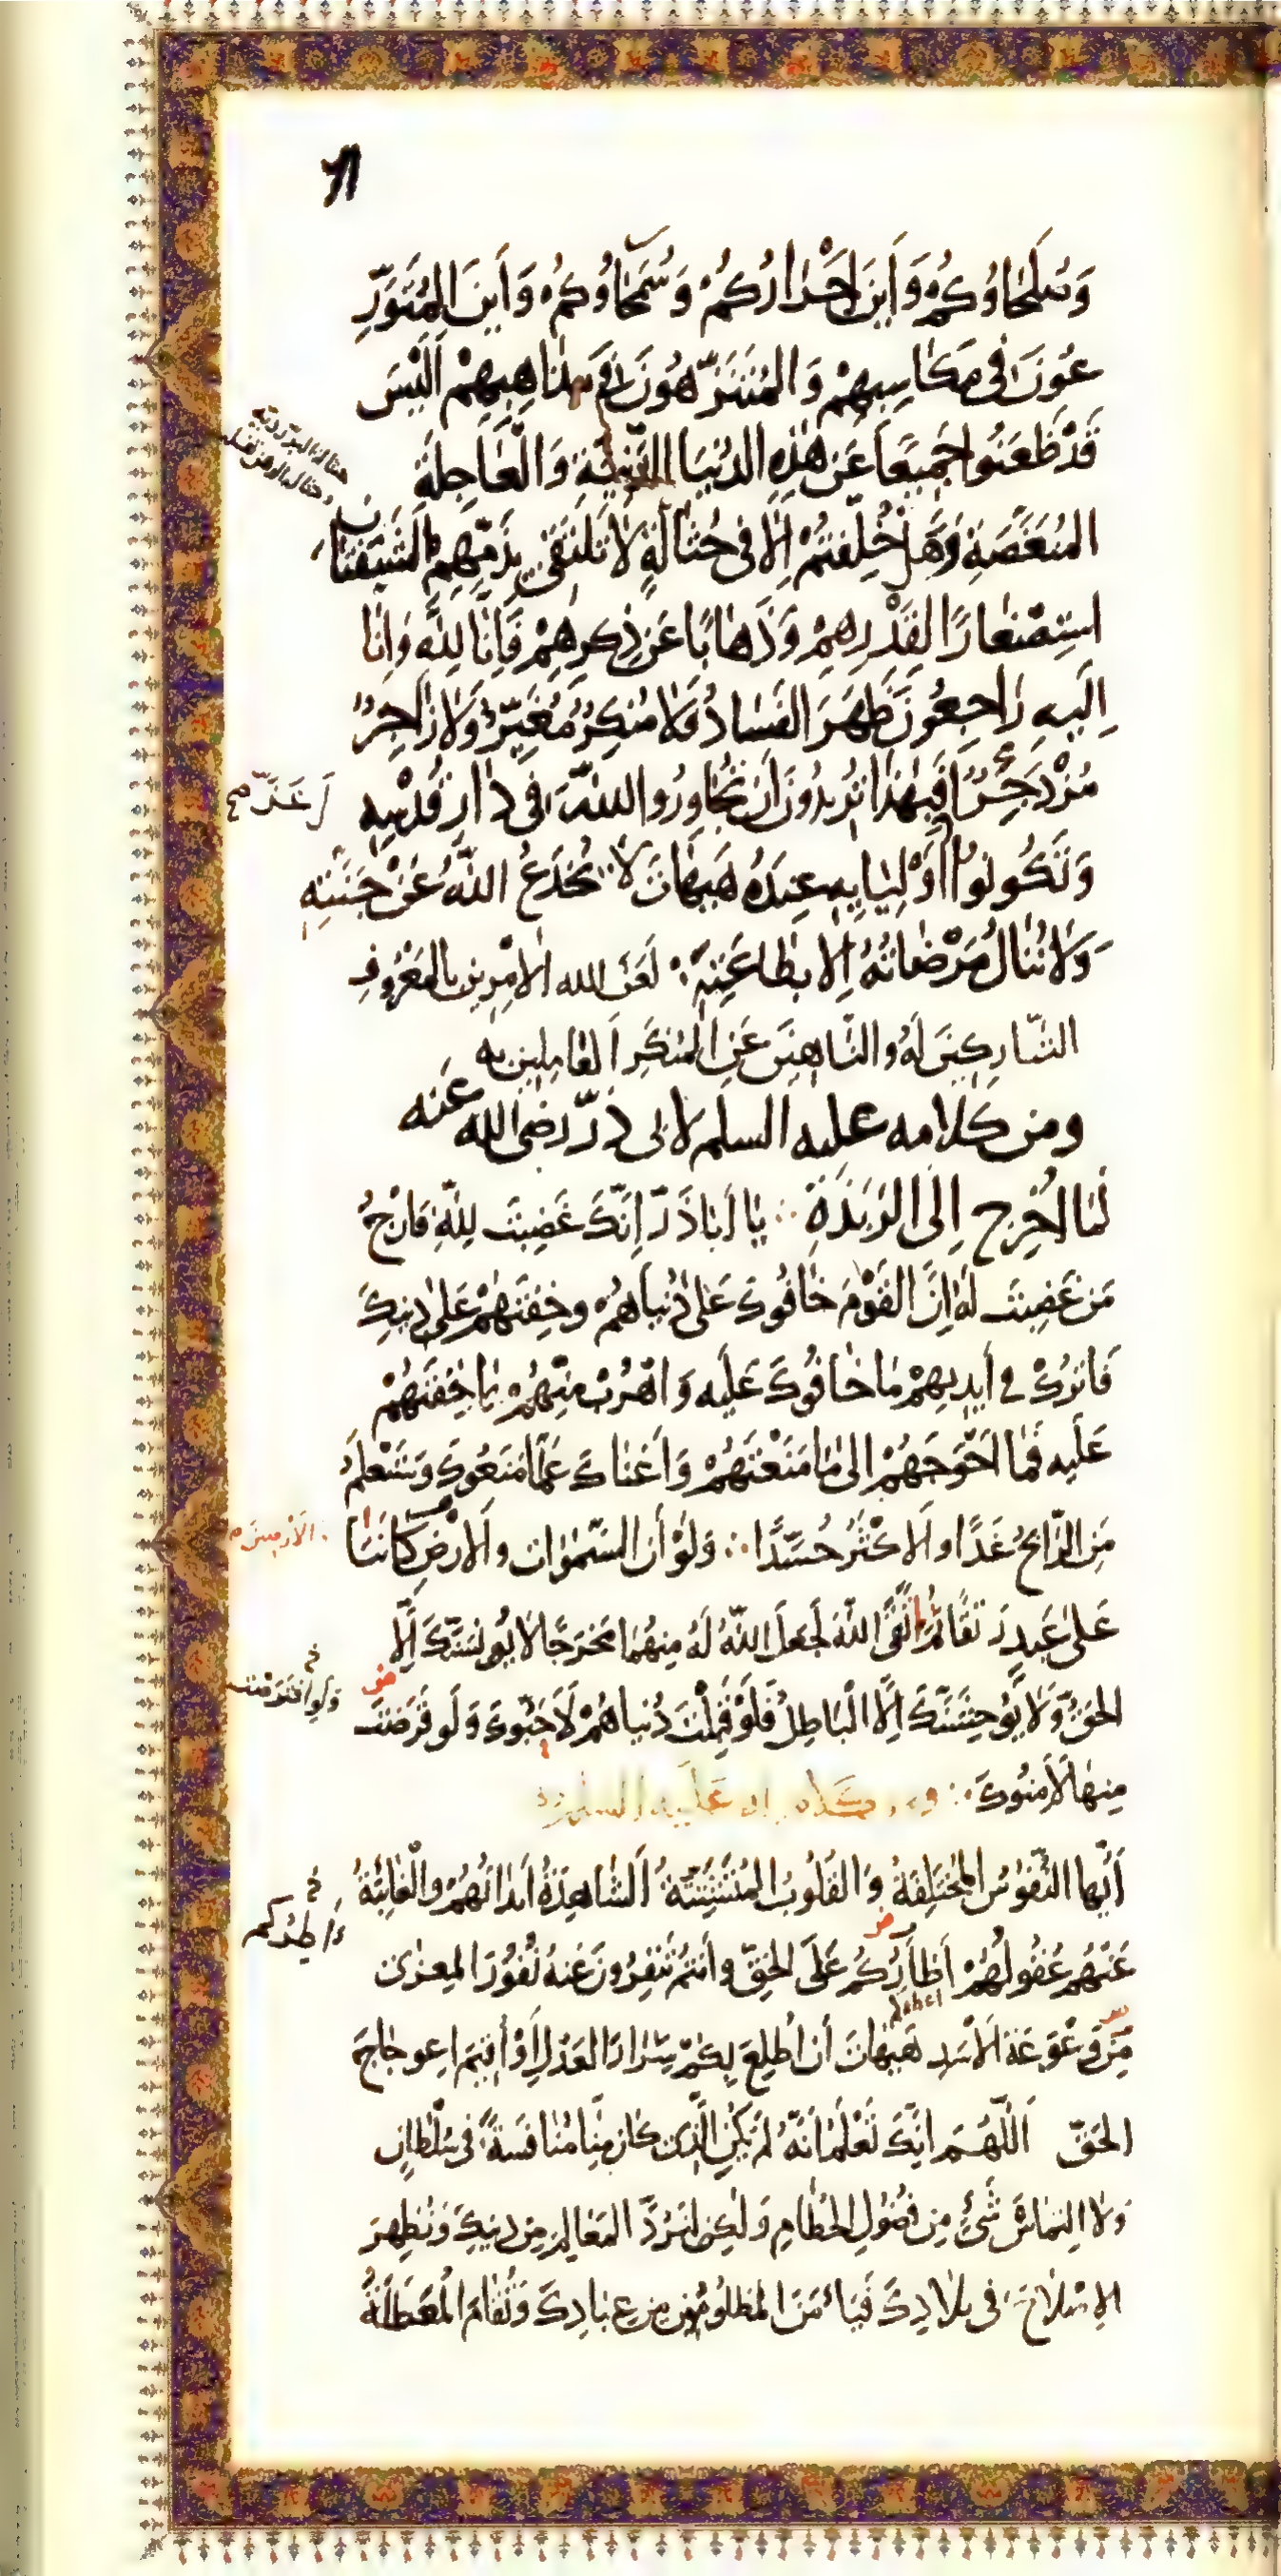 وَصُلَحَاؤُكُمْ وَأَيْنَ أَحْرَارُكُمْ وَسُمَحَاؤُكُمْ وَأَيْنَ المُتَوَرِّ
عُونَ فِى مَكَاسِبِهِمْ وَالمُتَنَزِّهُونَ فِى مَذَاهِبِهِمْ أَلَيْسَ
قَدْ ظَعَنُوا جَمِيعًا عَنْ هٰذِهِ الدُنْيَا الدَّنِيَّةِ وَالْعَاجِلَةِ
المُنَغَّصَةِ وَهَلْ خُلِّفْتُمْ إِلَّا فِى حُثَالَةٍ لَا تَلْتَقِى بِذَمِّهِمُ الشَّفَتَانِ
اسْتِصْغَارًا لِقَدْرِهِمْ وَذَهَابًا عَنْ ذِكْرِهِمْ فَإِنَّا لِلّٰهِ وَإِنَّا
إِلَيْهِ رَاجِعُونَ ظَهَرَ الفَسَادُ فَلَا مُنْكِرٌ مُغَيِّرٌ وَلَا زَاجِرٌ
مُزْدَجِرٌ أَفَبِهٰذَا تُرِيدُونَ أَنْ تُجَاوِرُوا اللّٰهَ فِى دَارِ قُدْسِهِ
وَتَكُونُوا أَوْلِيَاءِهِ عِنْدَهُ هَيْهَاتَ لَا يُخْدَعُ اللّٰهُ عَنْ جَنَّتِهِ
وَلَا تُنَالُ مَرْضَاتُهُ إِلَّا بِطَاعَتِهِ ؞ لَعَنَ اللّٰه الآمِرِينَ بِالمَعْرُوفِ
التَّارِكِينَ لَهُ وَالنَّاهِينَ عَنِ المُنْكَرِ العَامِلِينَ بِهِ
ومن كلامه عليه السلم لابى ذرّ رضى الله عنه
لَمَّا أُخْرِجَ إِلَى الرَبَذَةِ ؞ يَا أَبَا ذَرّ إِنَّكَ غَضِبْتَ لِلّٰهِ فَارْجُ
مَنْ غَضِبْتَ لَهُ إِنَّ القَوْمَ خَافُوكَ عَلَى دُنْيَاهُمْ وَخِفْتَهُمْ عَلَى دِينِكَ
فَاتْرُكْ فِى أَيْدِيهِمْ مَا خَافُوكَ عَلَيْهِ وَاهْرُبْ مِنْهُمْ بِمَا خِفْتَهُمْ
عَلَيْهِ فَمَا أَحْوَجَهُمْ إِلَى مَا مَنَعْتَهُمْ وَأَغْنَاكَ عَمَّا مَنَعُوكَ وَسَتَعْلَمُ
مَنِ الرَّابِحُ غَدًا وَالأَكْثَرُ حُسَّدًا ؞ وَلَوْ أَنَّ السَّمٰوَات وَالأَرْضَ كَانَتَا
الأَرَضِينَ
عَلَى عَبْدٍ رَتْقًا ثُمَّ اتَّقَى اللّٰهَ لَجَعَلَ اللّٰهُ لَهُ مِنْهُمَا مَخْرَجًا لَا يُؤْنِسَنَّكَ إِلَّا
الحَقُّ وَلَا يُوحِشَنَّكَ إِلَّا الْبَاطِلُ فَلَوْ قَبِلْتَ دُنْيَاهُمْ لَأَحَبُّوكَ وَلَوْ قَرَضْتَ
مِنْهَا لَأَمِنُوكَ ؞ ومن كلام له عليه السلم
أَيَّتُهَا النُّفُوسُ المُخْتَلِفَةُ وَالقُلُوبُ المُتَشَتِّتَةُ الشَّاهِدَةُ أَبْدَانُهُمْ وَالْغَائِبَةُ
عَنْهُمْ عُقُولُهُمْ أَظْأَرُكُمْ عَلَى الحَقِّ وَأَنْتُمْ تَنْفِرُونَ عَنْهُ نُفُورَ المِعْزَى
مِنْ وَعْوَعَةِ الأَسَدِ هَيْهَاتَ أَنْ أَطْلَعَ بِكُمْ سِرَارَ العَدْلِ أَوْ أُقِيمَ اعْوِجَاجَ
الحَقِّ اللّٰهُمَّ إِنَّكَ تَعْلَمُ أَنَّهُ لَمْ يَكُنِ الَّذِى كَانَ مِنَّا مُنَافَسَةً فِى سُلْطَانٍ
وَلَا الْتِمَاسَ شَىْءٍ مِنْ فُضُولِ الحُطَامِ وَلٰكِنْ لِنَرُدَّ المَعَالِمَ مِنْ دِينِكَ وَنُظْهِرَ
الإِصْلَاحَ فِى بِلَادِكَ فَيَأْمَنَ المَظْلُومُونَ مِنْ عِبَادِكَ وَتُقَامَ الْمُعَطَّلَةُ